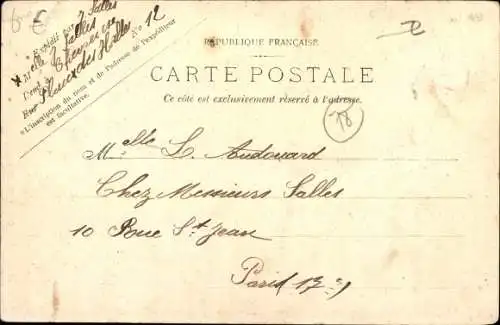 6 €
Expédié par J. Salles
Melle J. Salles
Demt à
Rue Place des Halles N° 12
« L'inscription du nom et de l'adresse de l'expéditeur
est facultative.
RÉPUBLIQUE FRANÇAISE
CARTE POSTALE
Ce côté est exclusivement réservé à l'adresse.
78
Melle L. Audouard
Chez Messieurs Salles
10 Rue St Jean
Paris 17